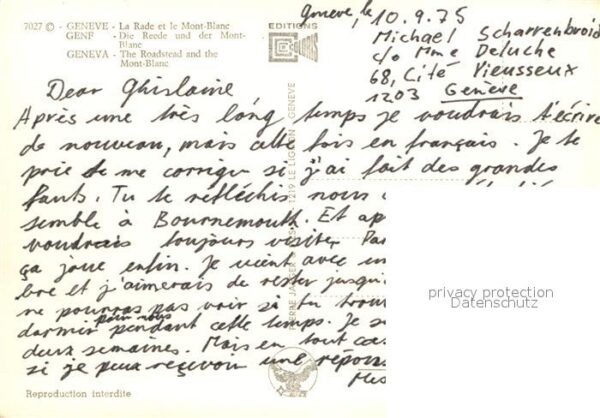 7027 © - GENEVE - La Rade et le Mont-Blanc
GENF - Die Reede und der Mont-
Blanc
GENEVA - The Roadstead and the
Mont-Blanc
EDITIONS
Genève, le 10.9.75
Michael Scharrenbroid
c/o Mme Deluche
68, Cité Vieusseux
1203 Genève
Dear Ghislaine
Après une très long temps je voudrais t'écrire
de nouveau, mais cette fois en français. Je te
prie de me corrige si j'ai fait des grandes
fauts. Tu te refléchis nous
semble à Bournemouth. Et ap
voudrais toujours visiter
ça joue enfin. Je vient avec un
bre et j'aimerais de rester jusqu
ne pourras pas voir si tu trou
dormir pour nous pendant cette temps. Je s
deux semaines. Mais en tout cas
si je peux reçevoir une répons
1219 LE LIGNON - GENEVE
privacy protection
Datenschutz
Reproduction interdite